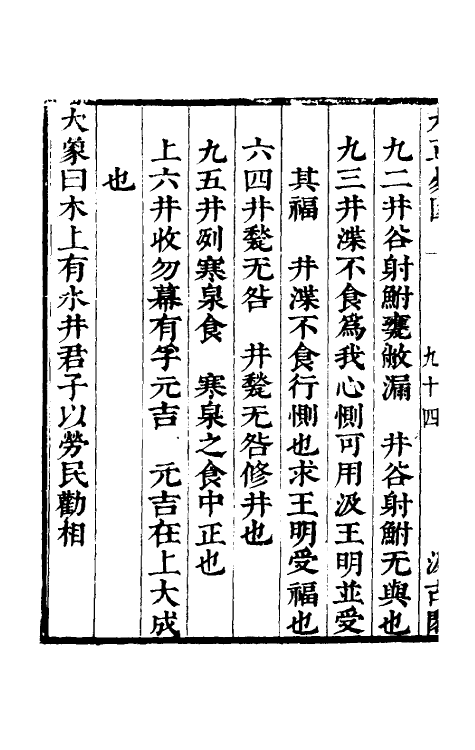 九十四
九二井谷射鮒甕敝漏　井谷射鮒无與也
九三井渫不食爲我心惻可用汲王明並受
其福　井渫不食行惻也求王明受福也
六四井甃无咎　井甃无咎修井也
九五井冽寒泉食　寒泉之食中正也
上六井收勿幕有孚元吉　元吉在上大成
也
大象曰木上有水井君子以勞民勸相